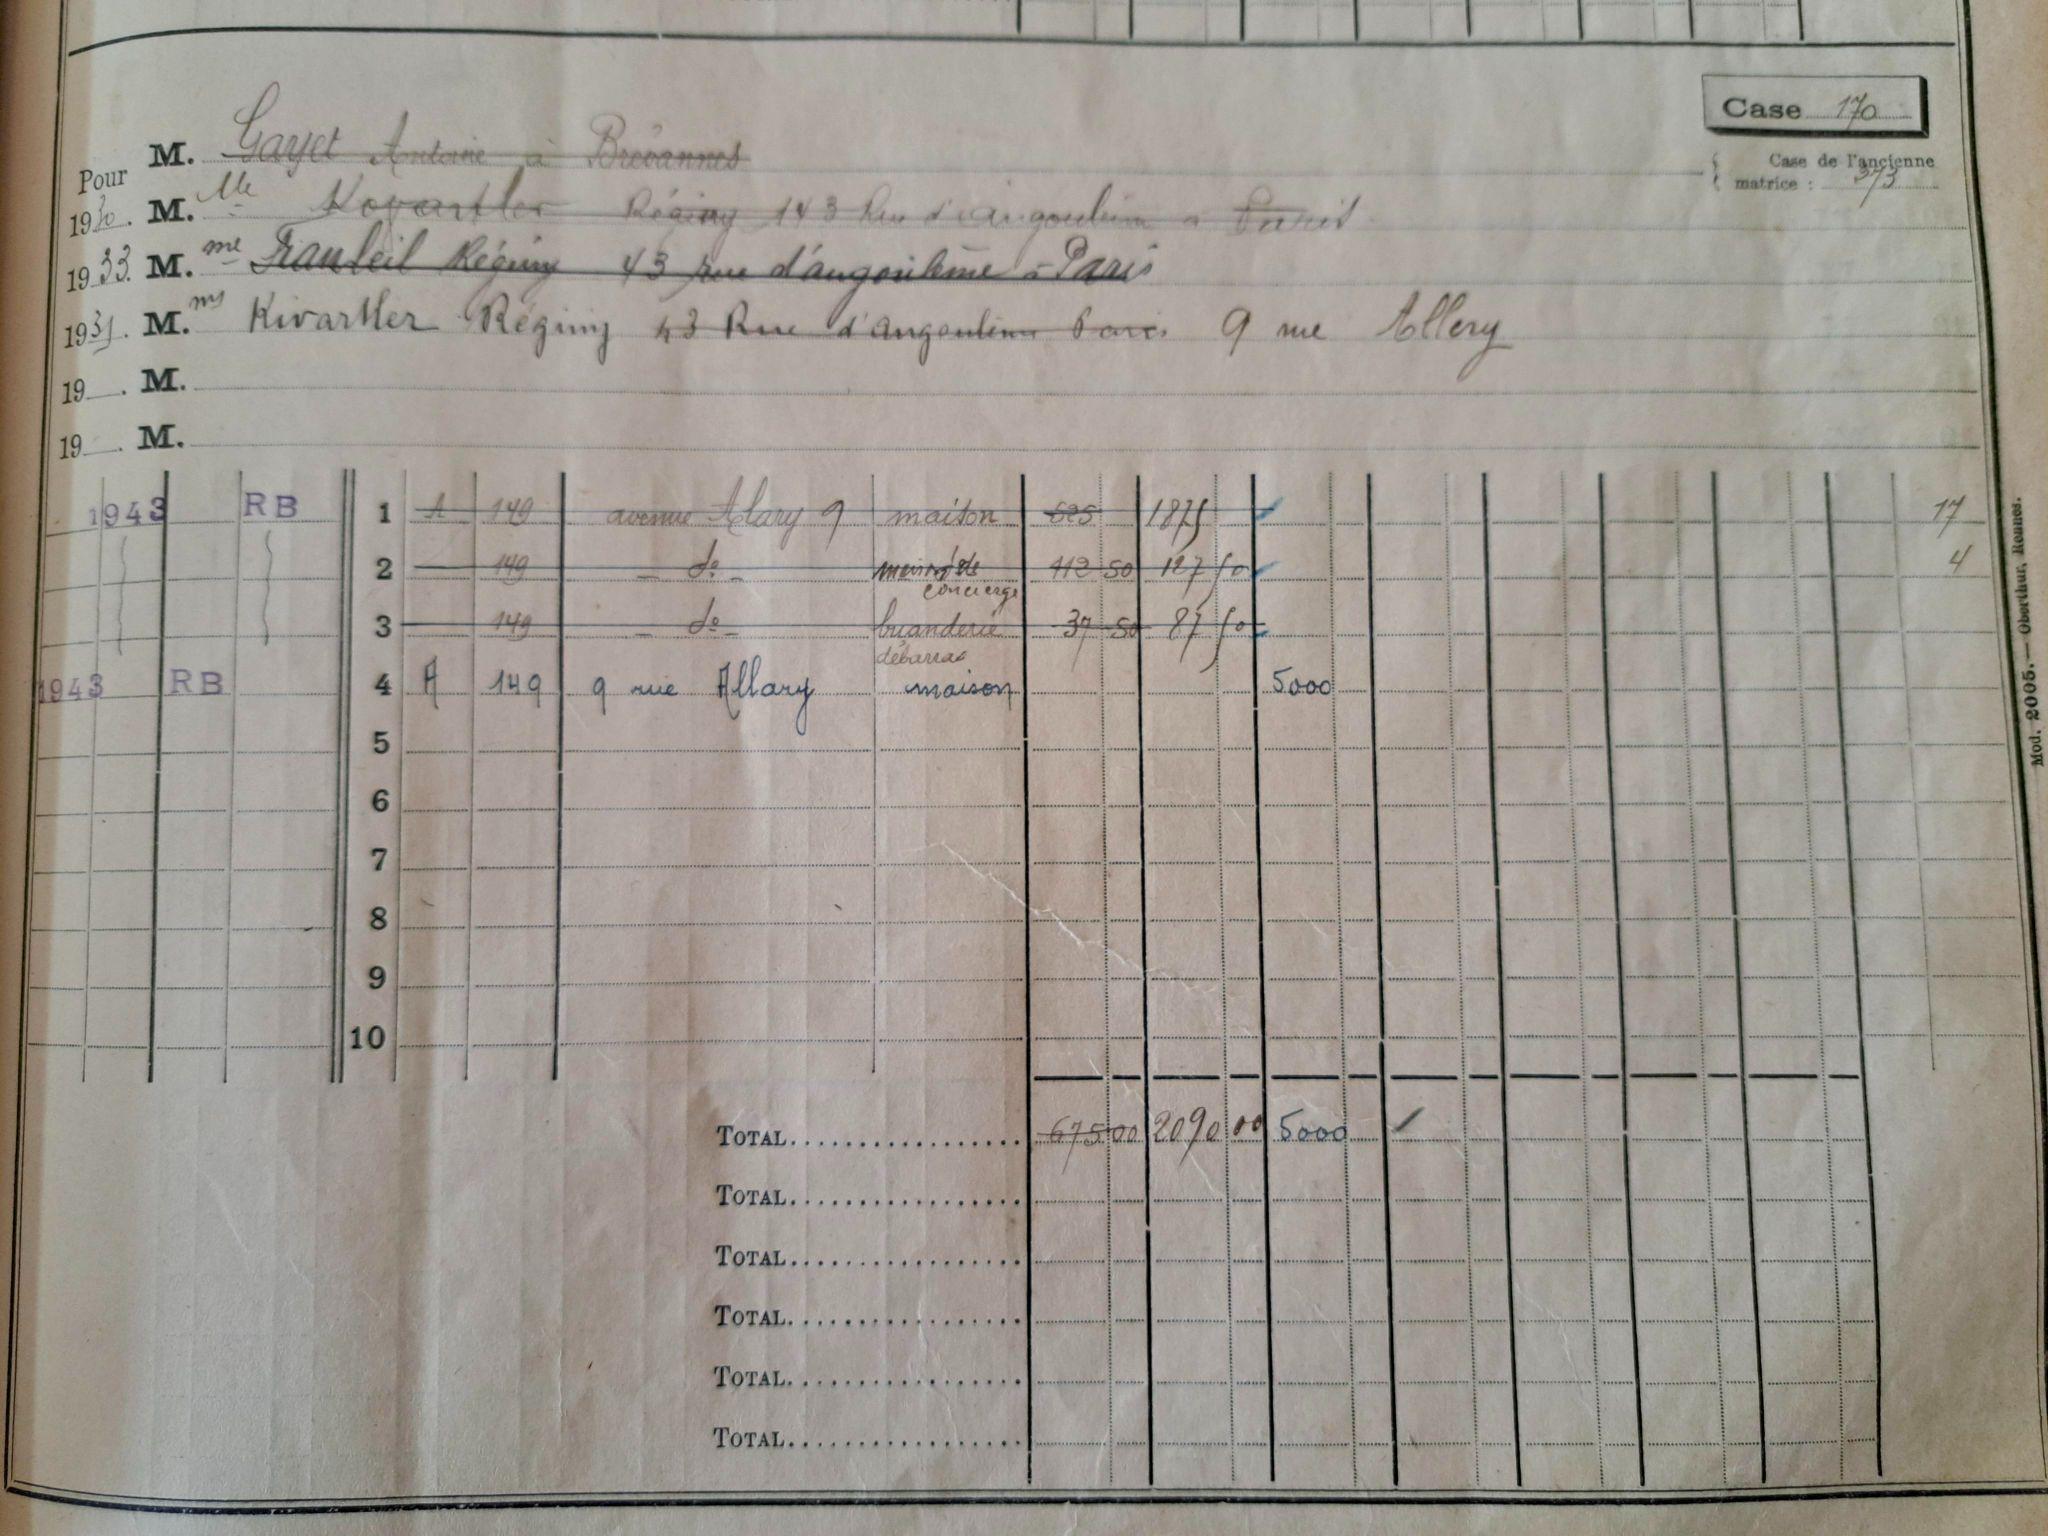 Case 170
Pour M. Gayet Antoine à Brévannes
Case de l'ancienne
matrice : 373
1930. M. Mlle Kovartler Réginy 143 Rue d'angoulême à Paris
1933. M. me Franleil Réginy 43 rue d'angoulême à Paris
193 . M. Kivartler Réginy 43 Rue d'Angoulême Paris 9 rue Allery
19 . M.
19 . M.
1943 RB 1 A 149 avenue Alary 9 maison 525 1875 17
2 149 - do - maison de concierge 112 50 127 50 4
3 149 - do - buanderie débarras 37 50 87 50
1943 RB 4 A 149 9 rue Allary maison 5000
5
6
7
8
9
10
TOTAL 675 00 2090 00 5000
TOTAL
TOTAL
TOTAL
TOTAL
TOTAL
Mod. 2005. — Oberthur, Rennes.